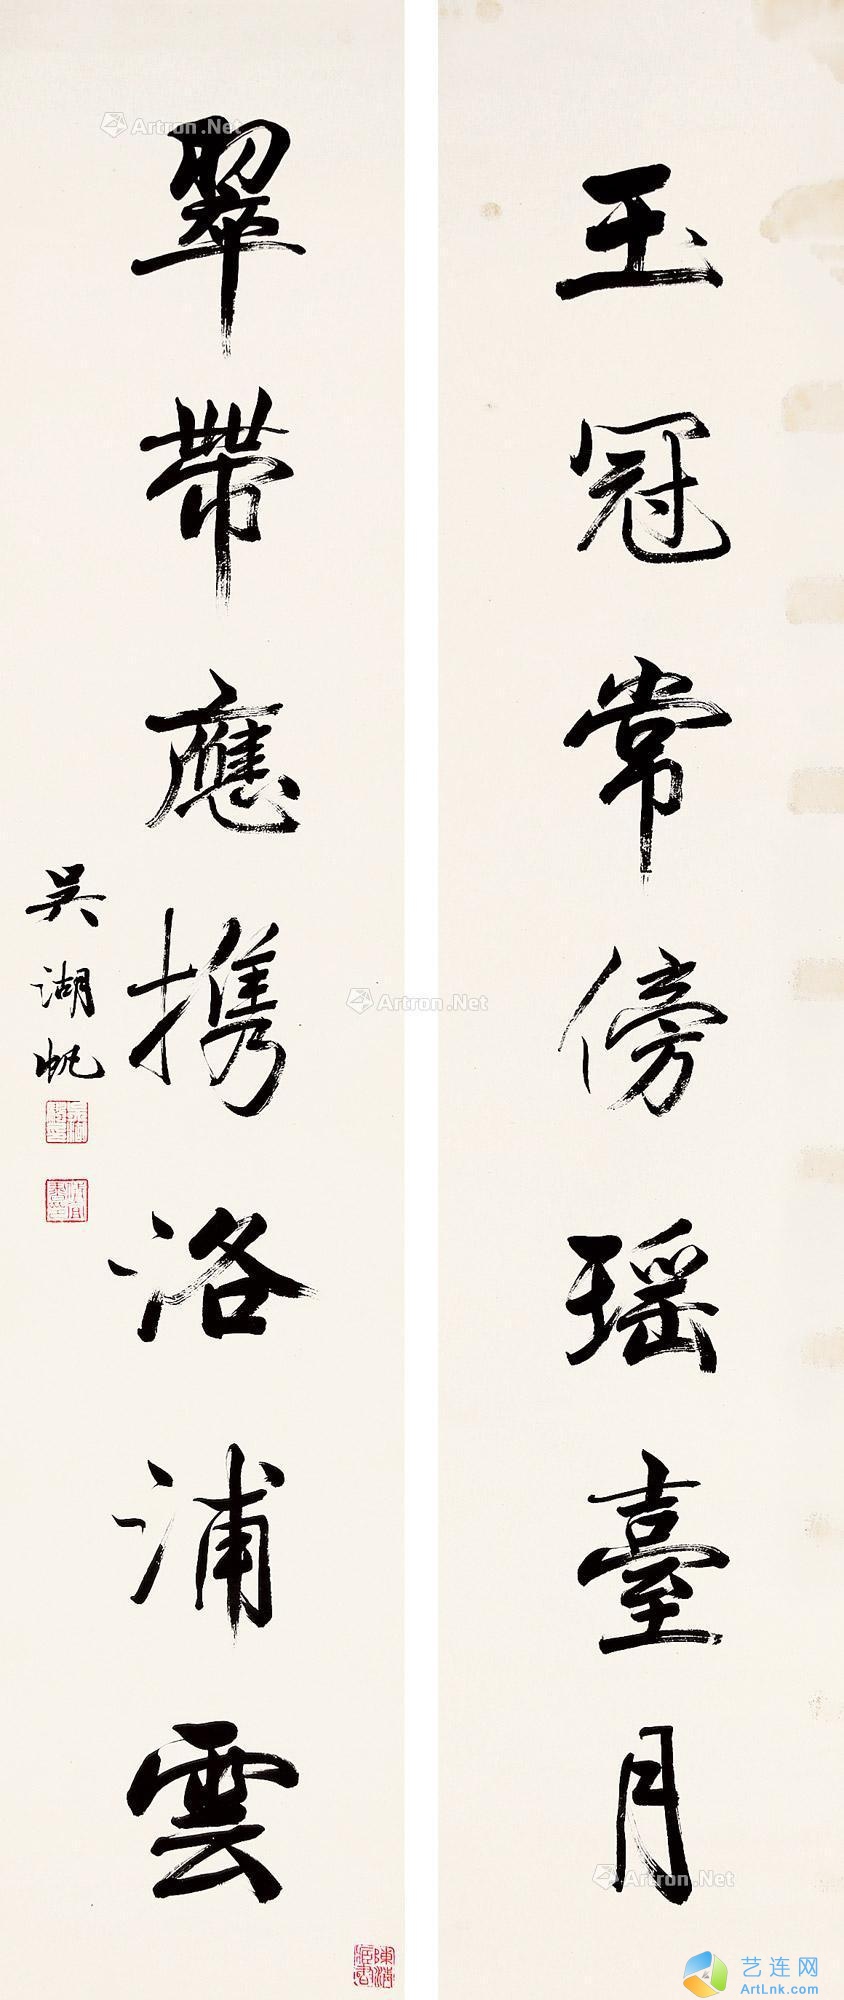 玉冠常傍瑶臺月
翠帶應攜洛浦雲
吳湖帆
Artron.Net
Artron.Net
Artron.Net
艺连网
ArtLnk.com